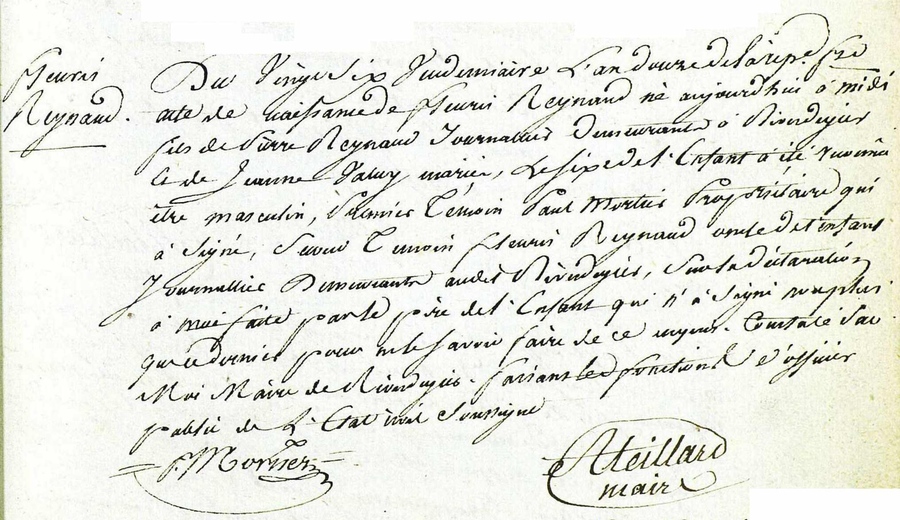 Fleuris
Reynaud.
Du Vingt Six Vendemiaire L'an douze de la rep. fse
acte de naissance de fleuris Reynaud né aujourd'hui à midi
fils de Pierre Reynaud Journallier Demeurant à Riverdegier
et de Jeanne mariés, Le sixe de l'Enfant à été reconnu
être masculin, Premier Témoin Paul Mortier Propriétaire qui
à Signé, Second Temoin fleuris Reynaud oncle de l'enfant
Journallier Demeurant audit Riverdegier, Sur la déclaration
à moi faite par le père de l'Enfant qui n'à Signé non plus
que ce dernier pour ne le savoir faire de ce enquis. Constaté Par
Moi Maire de Riverdegier faisant les fonctions d'officier
public de L'Etat civil Soussigné
maire